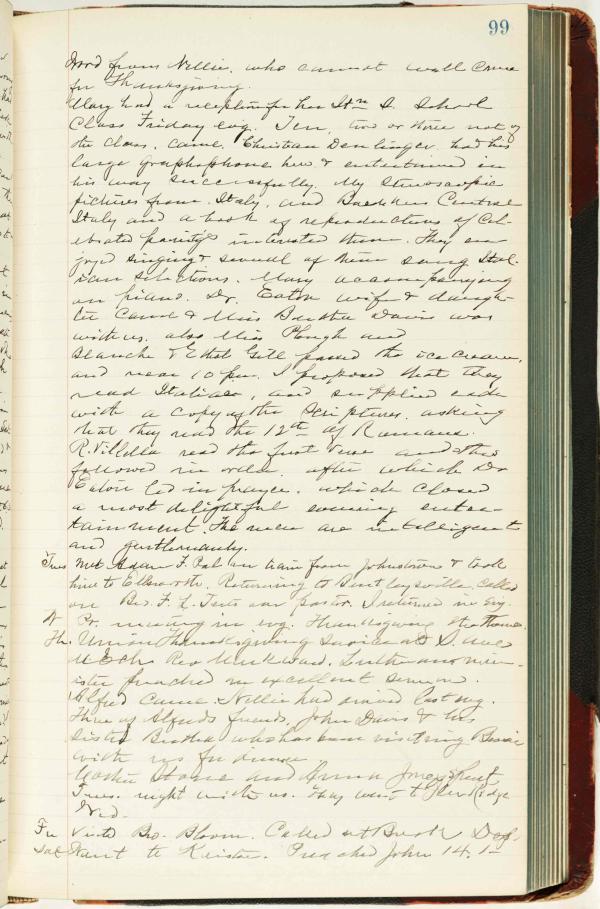 99
Word from Nellie, who cannot well come
for Thanksgiving.
Mary had a reception for her Itn S. School
Class Friday evg. Ten, two or three not of
the class, came. Christian Denlinger had his
large graphophone here & entertained in
his way successfully. My stereoscopic
pictures from Italy, and Central
Italy and a book of reproductions of Cel-
ebrated paintgs interested them. They en-
joyed singing & several of them sang Ital-
ian selections. Mary accompanying
on piano. Dr. Eaton wife & daugh-
ter came & Miss Bertha Davis was
with us. also Miss Plough and
Blanche & Ethel Gill passed the ice cream,
and near 10 p.m. I proposed that they
read Italian, and supplied each
with a copy of the Scriptures, asking
that they read the 12th of Romans.
R. Villella read the first verse and others
followed in order. after which Dr
Eaton led in prayer. which closed
a most delightful evening enter-
tainment. The men are intelligent
and gentlemanly.
Tues Met Adam F. Pal on train from Johnstown & took
him to Ellsworth. Returning to called
on Bro. F. L. our pastor. I returned in evg.
W Pr. meeting in evg. Thanksgiving
Th. Union Thanksgiving Service at
M E Ch. Rev Lutheran min-
ister preached an excellent sermon.
Alfred came. Nellie had arrived last evg.
Three of Alfreds friends, John Davis & his
sister Bertha who has been visiting Bessie
with us for dinner.
Stone and Anna Jones spent
Tues. night with us. They went to Glen Ridge
Wed.
Fr Visited Bro. Bloom. Called at
Sat Went to Keister. Preached John 14.1-